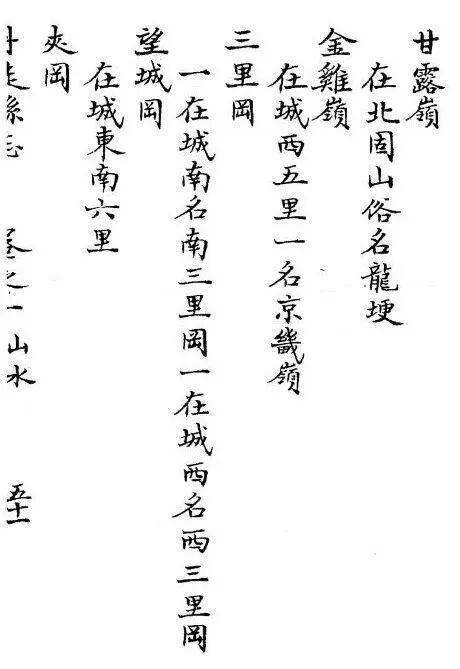 甘露嶺
在北固山俗名龍埂
金雞嶺
在城西五里一名京畿嶺
三里岡
一在城南名南三里岡一在城西名西三里岡
望城岡
在城東南六里
夾岡
丹徒縣志 卷之一 山水 五十一